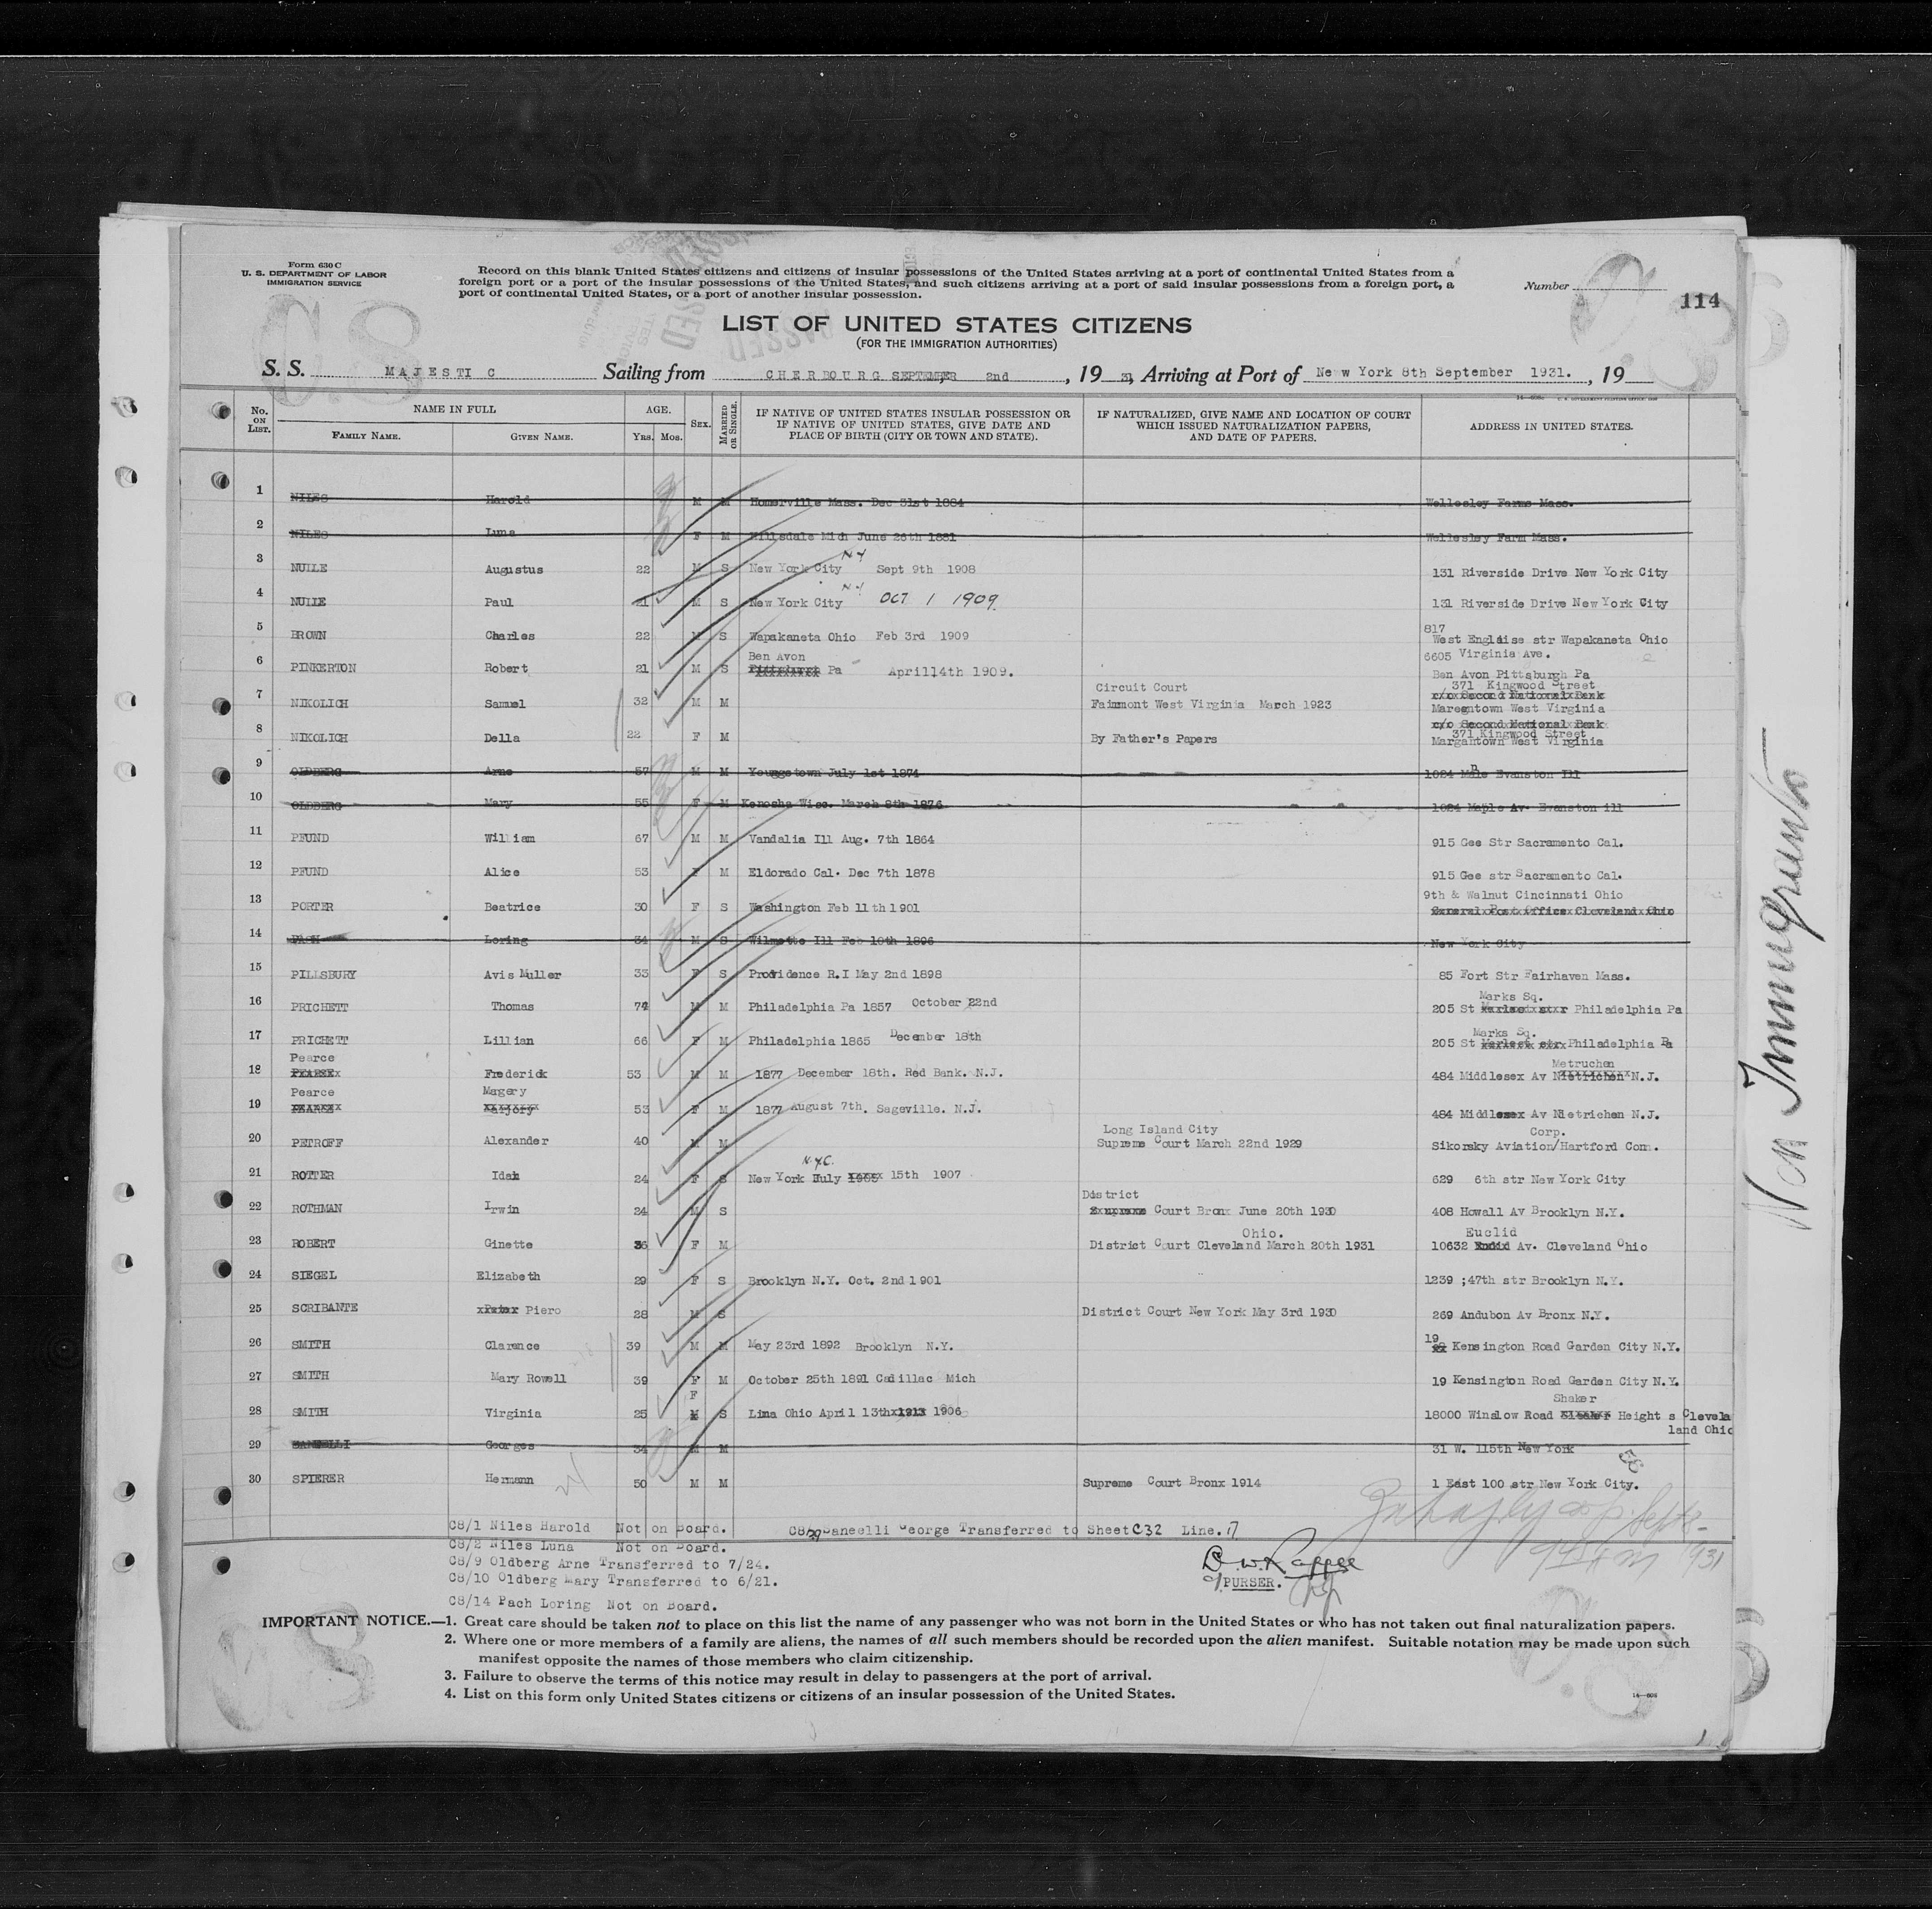 Form 630 C
U. S. DEPARTMENT OF LABOR
IMMIGRATION SERVICE
Record on this blank United States citizens and citizens of insular possessions of the United States arriving at a port of continental United States from a
foreign port or a port of the insular possessions of the United States, and such citizens arriving at a port of said insular possessions from a foreign port, a
port of continental United States, or a port of another insular possession.
Number
114
LIST OF UNITED STATES CITIZENS
(FOR THE IMMIGRATION AUTHORITIES)
S. S. MAJESTIC Sailing from CHERBOURG SEPTEMBER 2nd, 19 31, Arriving at Port of New York 8th September 1931. , 19
No. ON LIST. NAME IN FULL FAMILY NAME. GIVEN NAME. AGE. YRS. MOS. SEX. MARRIED OR SINGLE. IF NATIVE OF UNITED STATES INSULAR POSSESSION OR IF NATIVE OF UNITED STATES, GIVE DATE AND PLACE OF BIRTH (CITY OR TOWN AND STATE). IF NATURALIZED, GIVE NAME AND LOCATION OF COURT WHICH ISSUED NATURALIZATION PAPERS, AND DATE OF PAPERS. ADDRESS IN UNITED STATES.
1 NILES Harold M M Homerville Mass. Dec 31st 1884 Wellesley Farms Mass.
2 NILES Luna F M Hillsdale Mich June 26th 1881 Wellesley Farm Mass.
3 NULLE Augustus 22 M S New York City NY Sept 9th 1908 131 Riverside Drive New York City
4 NULLE Paul 21 M S New York City NY OCT 1 1909 131 Riverside Drive New York City
5 BROWN Charles 22 M S Wapakaneta Ohio Feb 3rd 1909 817 West Englaise str Wapakaneta Ohio
6 PINKERTON Robert 21 M S Ben Avon Pa April 14th 1909. 6605 Virginia Ave. Ben Avon Pittsburgh Pa
7 NIKOLICH Samuel 32 M M Circuit Court Fairmont West Virginia March 1923 371 Kingwood Street c/o Second National Bank Maregntown West Virginia
8 NIKOLICH Della 22 F M By Father's Papers c/o Second National Bank 371 Kingwood Street Margantown West Virginia
9 OLDBERG Arne 57 M M Youngstown July 1st 1874 1024 Evanston Ill
10 OLDBERG Mary 55 F M Kenosha Wisc. March 8th 1876 1024 Maple Av. Evanston ill
11 PFUND William 67 M M Vandalia Ill Aug. 7th 1864 915 Gee Str Sacramento Cal.
12 PFUND Alice 53 F M Eldorado Cal. Dec 7th 1878 915 Gee str Sacramento Cal.
13 PORTER Beatrice 30 F S Washington Feb 11th 1901 9th & Walnut Cincinnati Ohio General Post Office Cleveland Ohio
14 PACH Loring 34 M S Wilmette Ill Feb 10th 1896 New York City
15 PILLSBURY Avis Muller 33 F S Providence R.I May 2nd 1898 85 Fort Str Fairhaven Mass.
16 PRICHETT Thomas 74 M M Philadelphia Pa 1857 October 22nd 205 St Marks Sq. Philadelphia Pa
17 PRICHETT Lillian 66 F M Philadelphia 1865 December 18th 205 St Marks Sq. Philadelphia Pa
18 Pearce PEARSE Frederick 53 M M 1877 December 18th. Red Bank. N.J. 484 Middlesex Av Metruchen Nietrichen N.J.
19 Pearce PEARSE Magery Marjory 53 F M 1877 August 7th. Sageville. N.J. 484 Middlesex Av Nietrichen N.J.
20 PETROFF Alexander 40 M M Long Island City Supreme Court March 22nd 1929 Sikorsky Aviation/Corp. Hartford Conn.
21 ROTTER Idah 24 F S New York N.Y.C. July 1905 15th 1907 629 6th str New York City
22 ROTHMAN Irwin 24 M S District Supreme Court Bronx June 20th 1930 408 Howall Av Brooklyn N.Y.
23 ROBERT Ginette 36 F M District Court Cleveland Ohio. March 20th 1931 10632 Euclid Av. Cleveland Ohio
24 SIEGEL Elizabeth 29 F S Brooklyn N.Y. Oct. 2nd 1901 1239 ;47th str Brooklyn N.Y.
25 SCRIBANTE Peter Piero 28 M S District Court New York May 3rd 1930 269 Andubon Av Bronx N.Y.
26 SMITH Clarence 39 M M May 23rd 1892 Brooklyn N.Y. 19 Kensington Road Garden City N.Y.
27 SMITH Mary Rowell 39 F M October 25th 1891 Cadillac Mich 19 Kensington Road Garden City N.Y.
28 SMITH Virginia 25 F S Lima Ohio April 13th 1913 1906 18000 Winslow Road Shaker Heights Clevela land Ohio
29 Georges 34 M M 31 W. 115th New York
30 SPIERER Hermann 50 M M Supreme Court Bronx 1914 1 East 100 str New York City.
C8/1 Niles Harold Not on Board. C8/29 Daneelli George Transferred to Sheet C32 Line. 17
C8/2 Niles Luna Not on Board.
C8/9 Oldberg Arne Transferred to 7/24.
C8/10 Oldberg Mary Transferred to 6/21.
C8/14 Pach Loring Not on Board.
PURSER.
IMPORTANT NOTICE.—1. Great care should be taken not to place on this list the name of any passenger who was not born in the United States or who has not taken out final naturalization papers.
2. Where one or more members of a family are aliens, the names of all such members should be recorded upon the alien manifest. Suitable notation may be made upon such
manifest opposite the names of those members who claim citizenship.
3. Failure to observe the terms of this notice may result in delay to passengers at the port of arrival.
4. List on this form only United States citizens or citizens of an insular possession of the United States.
Non Immigrants
C8